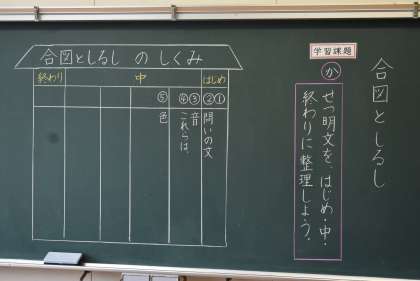 合図としるし
学習課題
か
せつ明文を、はじめ・中・
終わりに整理しよう。
合図としるしのしくみ
はじめ
中
終わり
①
②
③
④
⑤
問いの文
音
これらは、
色